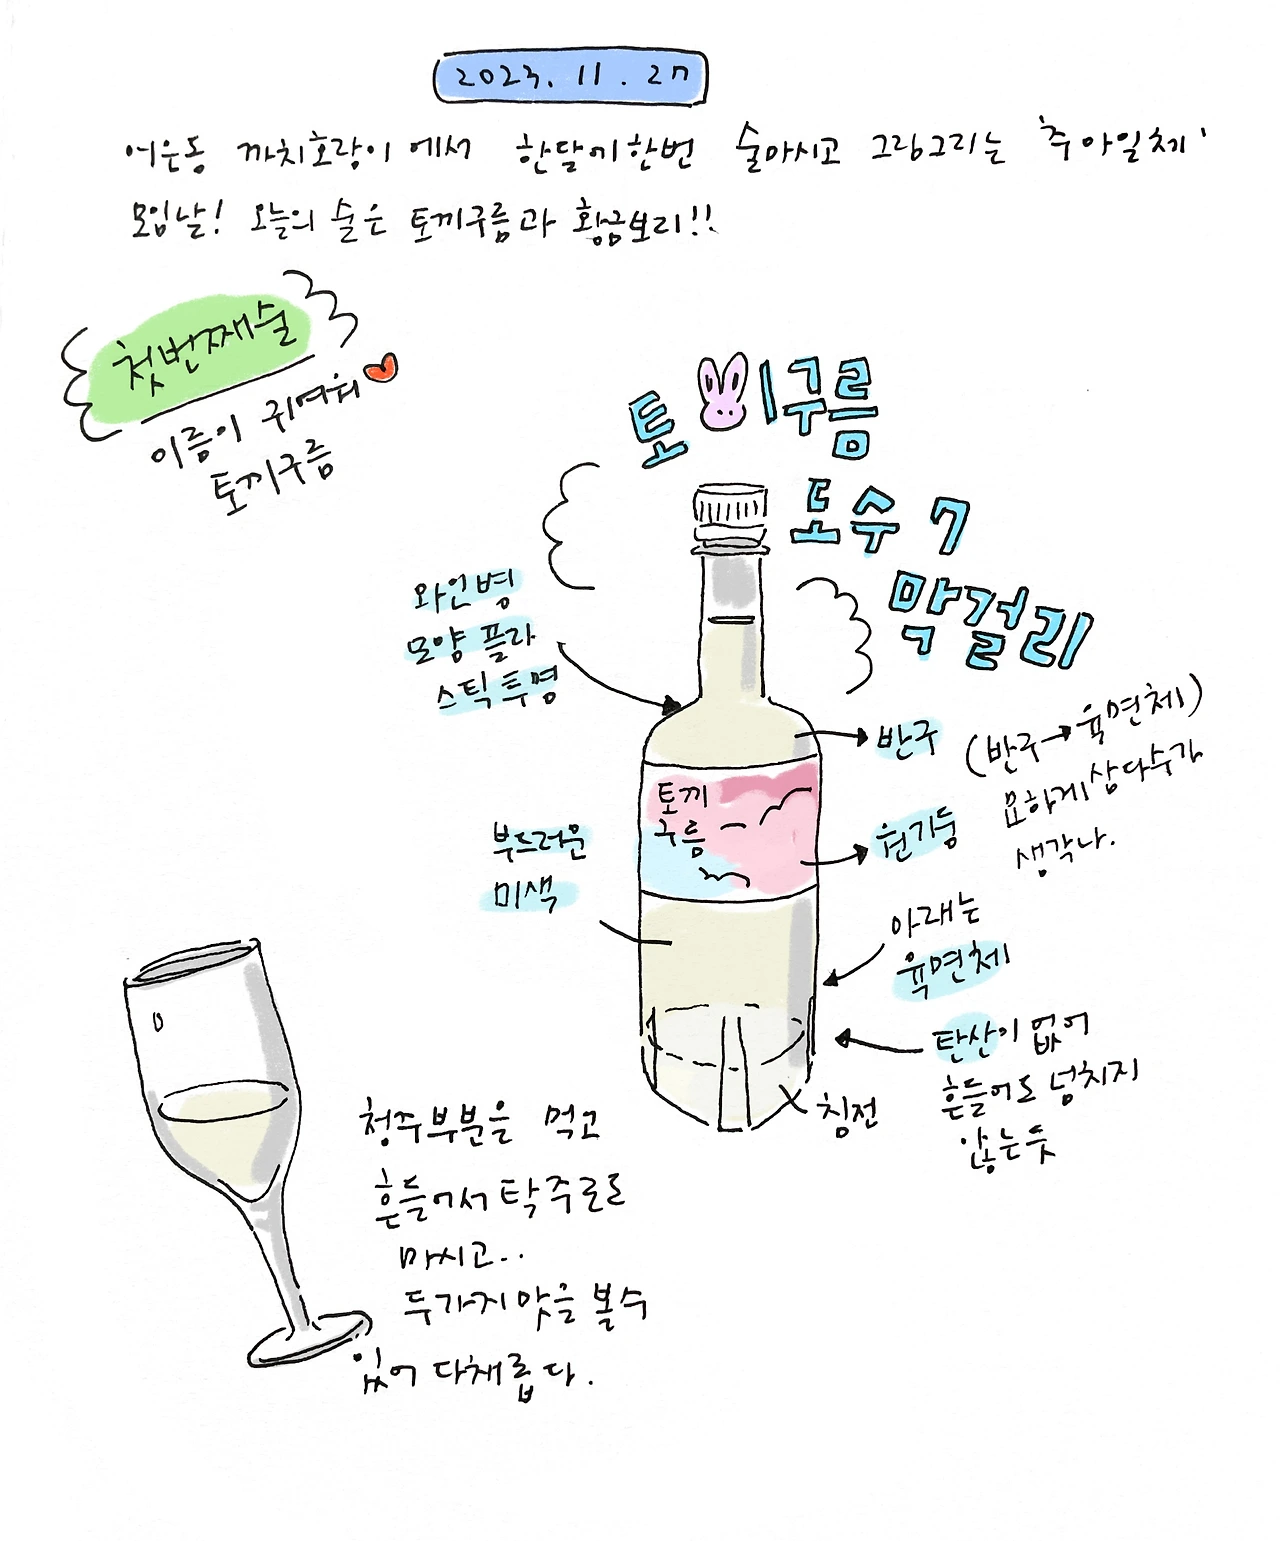 2023. 11. 27
어은동 까치호랑이에서 한달에한번 술마시고 그림그리는 '주아일체'
모임날! 오늘의 술은 토끼구름과 황금보리!!
첫번째술
이름이 귀여워
토끼구름
토끼구름
도수 7
막걸리
와인병
모양 플라
스틱 투명
반구
(반구→육면체)
묘하게 삼다수가
생각나.
토끼
구름
원기둥
부드러운
미색
아래는
육면체
탄산이 없어
흔들어도 넘치지
않는듯
침전
청주부분을 먹고
흔들어서 탁주로도
마시고..
두가지맛을 볼수
있어 다채롭다.